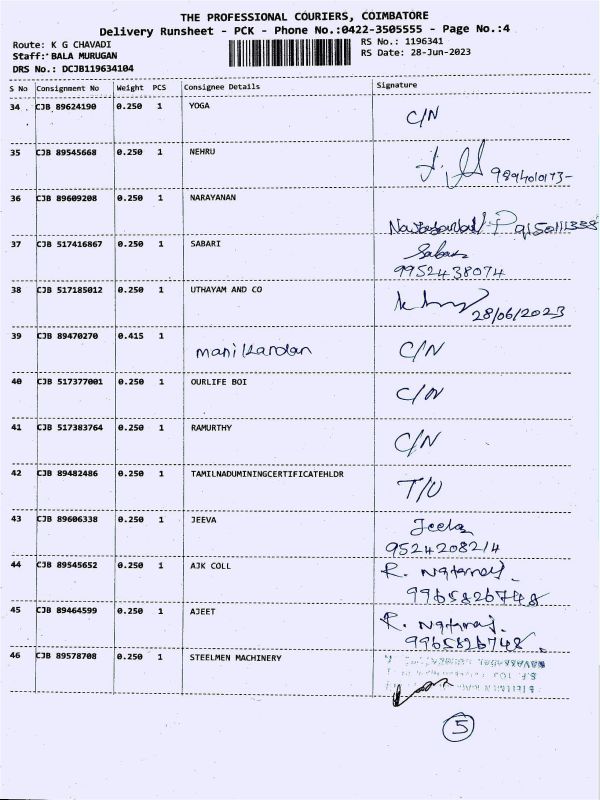 THE PROFESSIONAL COURIERS, COIMBATORE
Delivery Runsheet - PCK - Phone No.:0422-3505555 - Page No.:4
Route: K G CHAVADI
RS No.: 1196341
Staff: BALA MURUGAN
RS Date: 28-Jun-2023
DRS No.: DCJB119634104
S No Consignment No Weight PCS Consignee Details Signature
34 CJB 89624190 0.250 1 YOGA C/N
35 CJB 89545668 0.250 1 NEHRU 9894010173-
36 CJB 89609208 0.250 1 NARAYANAN
37 CJB 517416867 0.250 1 SABARI Sabari
9952438074
38 CJB 517185012 0.250 1 UTHAYAM AND CO
28/06/2023
39 CJB 89470270 0.415 1 manikandan C/N
40 CJB 517377001 0.250 1 OURLIFE BOI C/N
41 CJB 517383764 0.250 1 RAMURTHY C/N
42 CJB 89482486 0.250 1 TAMILNADUMININGCERTIFICATEHLDR T/U
43 CJB 89606338 0.250 1 JEEVA Jeeva
9524208214
44 CJB 89545652 0.250 1 AJK COLL R. Nataraj.
9965826748
45 CJB 89464599 0.250 1 AJEET R. Nataraj.
9965826748.
46 CJB 89578708 0.250 1 STEELMEN MACHINERY
5